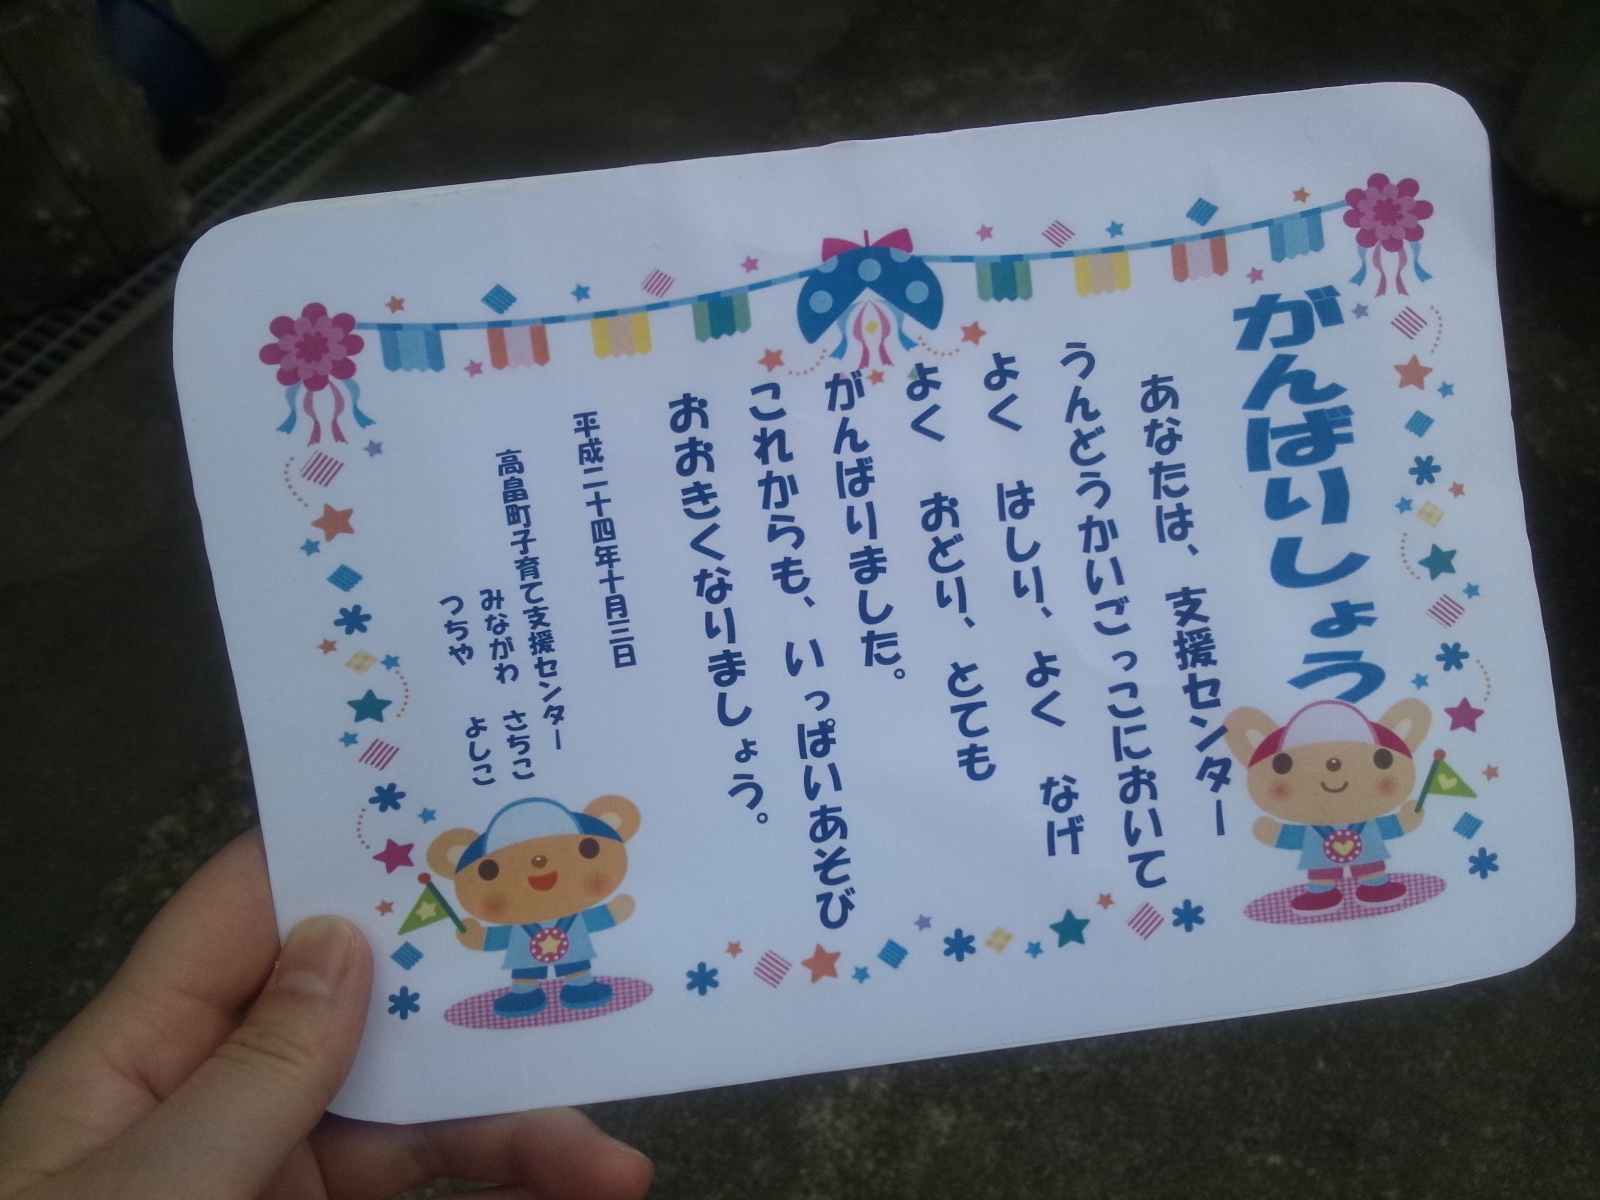 がんばりしょう
あなたは、支援センター
うんどうかいごっこにおいて
よく はしり、よく なげ
よく おどり、とても
がんばりました。
これからも、いっぱいあそび
おおきくなりましょう。
平成二十四年十月三日
高畠町子育て支援センター
みながわ さちこ
つちや よしこ